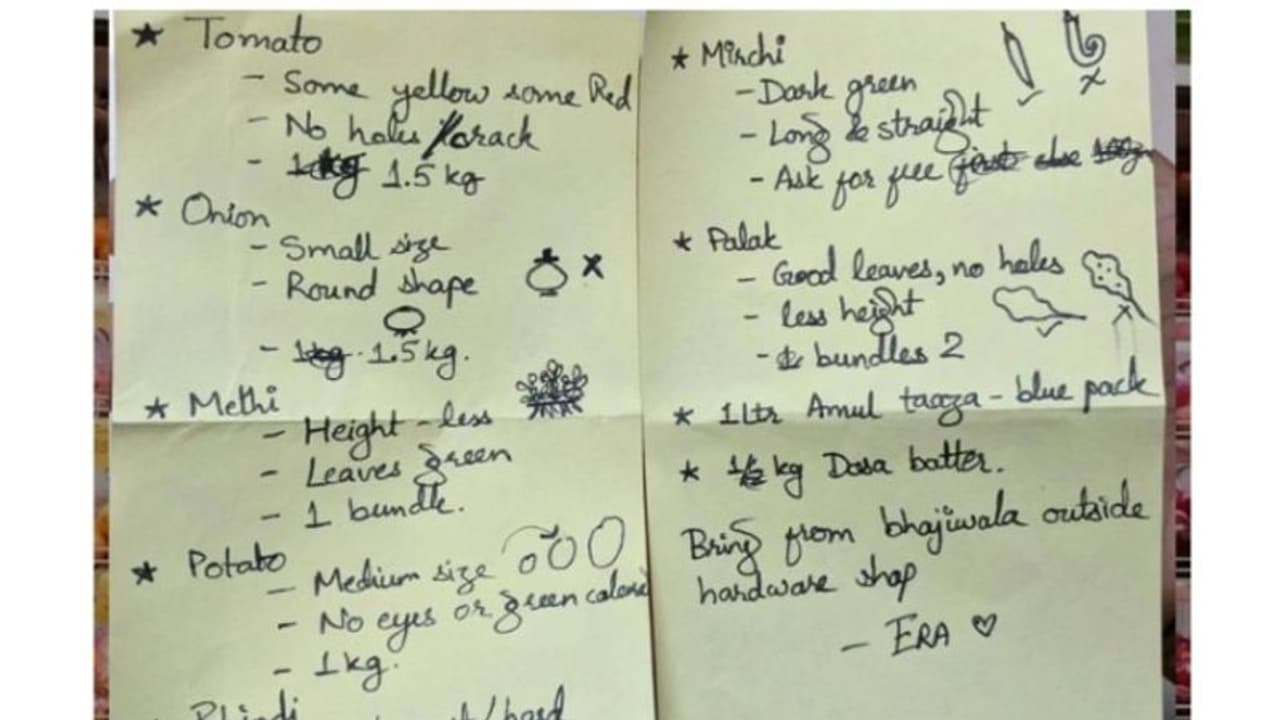 ★ Tomato
- Some yellow some Red
- No holes / crack
- 1.5 kg
★ Onion
- Small size
- Round shape
- 1.5 kg.
★ Methi
- Height - less
- Leaves green
- 1 bundle.
★ Potato
- Medium size
- No eyes or green
- 1 kg.
Bhindi
/hard
★ Mirchi
- Dark green
- Long & straight
- Ask for free
★ Palak
- Good leaves, no holes
- less height
- bundles 2
★ 1 Ltr Amul taaza - blue pack
★ 1/2 kg Dosa batter.
Bring from bhajiwala outside
hardware shop
- ERA ♡